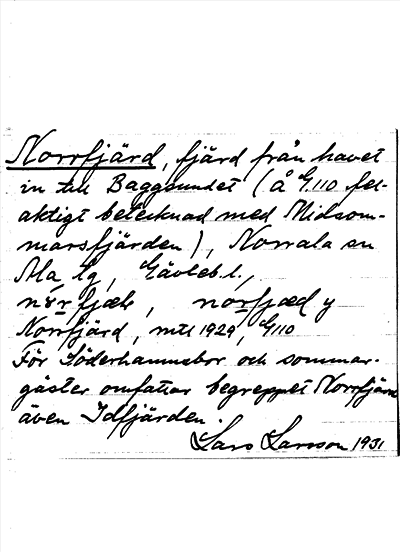 Norrfjärd, fjärd från havet
in till Baggsundet (å G.110 fel-
aktigt betecknad med Midsom-
marsfjärden), Norrala sn
Ala tg, Gävleb. l.,
Norrfjärd, mtl 1929, G110
För Söderhamnsbor och sommar-
gäster omfattar begreppet Norrfjärd
även Idfjärden.
Lars Larsson 1931